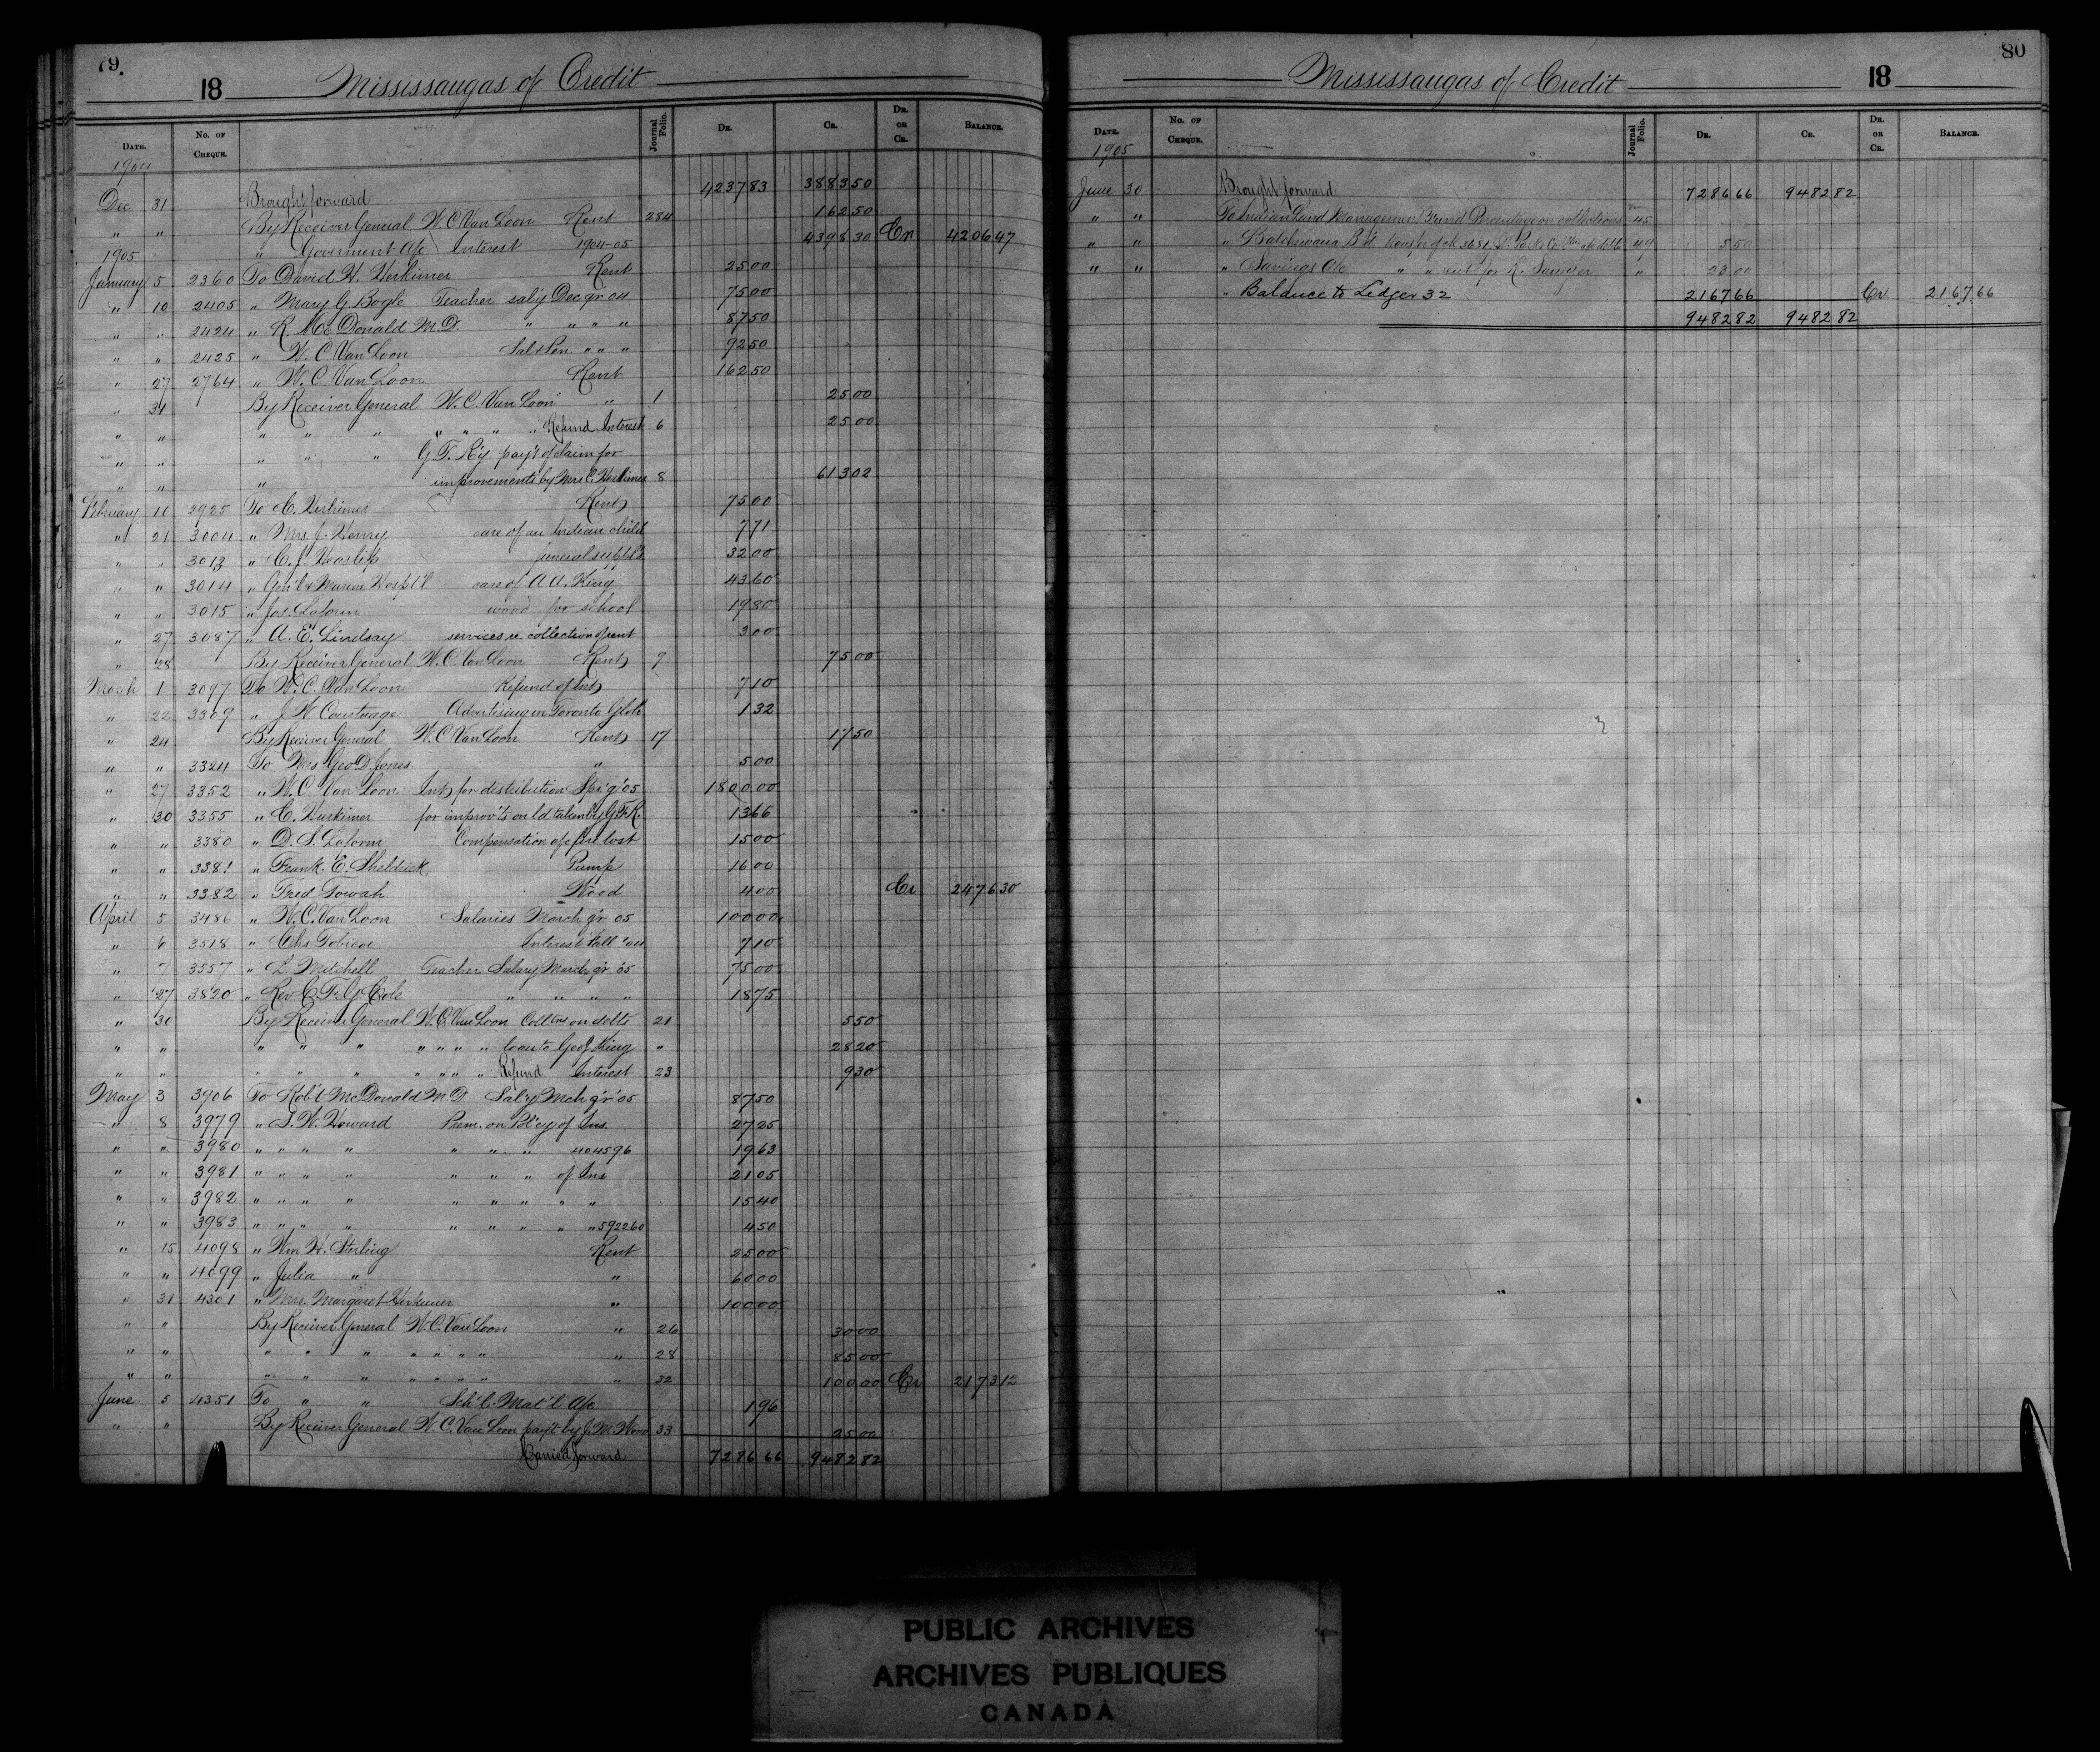 79.
18 Mississaugas of Credit
DATE. No. OF CHEQUE. Journal Folio. DR. CR. DR. OR CR. BALANCE.
1904
Dec 31 Brought forward 4237 83 3883 50
" " By Receiver General W. C. Van Loon Rent 284 162 50
1905 " Goverment a/c Interest 1904-05 4398 30 Cr 4206 47
January 5 2360 To David H. Herkimer Rent 25 00
" 10 2405 " Mary G. Bogle Teacher sal'y Dec qr 04 75 00
" " 2424 " R Mc Donald M.D. " " " " 87 50
" " 2425 " W. C. Van Loon Sal & Pen. " " " 92 50
" 27 2764 " W. C. Van Loon Rent 162 50
" 31 By Receiver General W. C. Van Loon " 1 25 00
" " " " " " " " " Refund Interest 6 25 00
" " " " " G. T. R'y pay't of claim for
" " " improvements by Mrs C. Herkimer 8 613 02
February 10 2925 To C. Herkimer Rent 75 00
" 21 3004 " Mrs. J. Henry care of an Indian child 7 71
" " 3013 " C. J. Heaslip funeral suppl's 32 00
" " 3014 " Gen'l & Marine Hospt'l care of A A. King 43 60
" " 3015 " Jos. Laform wood for school 19 80
" 27 3087 " A. E. Lindsay services re collection of rent 3 00
" 28 By Receiver General W. C. Van Loon Rent 9 75 00
March 1 3097 To W. C. Van Loon Refund of Int 7 10
" 22 3309 " J. W. Coutnage Advertising in Toronto Globe 1 32
" 24 By Receiver General W. C. Van Loon Rent 17 17 50
" " 3324 To Mrs Geo D. Jones " 5 00
" 27 3352 " W. C. Van Loon Int for distribution Sp'g '05 1800 00
" 30 3355 " C. Herkimer for improv'ts on ld taken by G.T.R. 13 66
" " 3380 " D. S. Laform Compensation a/c fire lost 15 00
" " 3381 " Frank. E. Sheldrick Pump 16 00
" " 3382 " Fred Towah Wood 4 00 Cr 2476 30
April 5 3486 " W. C. Van Loon Salaries March qr 05 100 00
" 6 3518 " Chs Tobicoe Interest Fall '04 7 10
" 7 3557 " L. Mitchell Teacher Salary March qr '05 75 00
" 27 3820 " Rev. C. F. G. Cole " " " " 18 75
" 30 By Receiver General W. C. Van Loon Coll'ns on debts 21 5 50
" " " " " " " " " loan to Geo J King " 28 20
" " " " " " " " " Refund Interest 23 9 30
May 3 3906 To Rob't McDonald M D Sal'y Mch qr '05 87 50
" 8 3979 " S. W. Howard Prem. on Pol'cy of Ins. 27 25
" " 3980 " " " " " " " 404596 19 63
" " 3981 " " " " " " " of Ins 21 05
" " 3982 " " " " " " " " " 15 40
" " 3983 " " " " " " " " " 592260 4 50
" 15 4098 " Wm H. Sterling Rent 25 00
" " 4099 " Julia " " 60 00
" 31 4301 " Mrs. Margaret Herkimer " 100 00
" " By Receiver General W. C. Van Loon " 26 30 00
" " " " " " " " " " 28 85 00
" " " " " " " " " " 32 100 00 Cr 2173 12
June 5 4351 To " " Sch'l. Mat'l a/c 1 96
" " By Receiver General W. C. Van Loon pay't by J. M. Wood 33 25 00
Carried forward 7286 66 9482 82
80
Mississaugas of Credit 18
DATE. No. OF CHEQUE. Journal Folio. DR. CR. DR. OR CR. BALANCE.
1905
June 30 Brought forward 7286 66 9482 82
" " To Indian Land Management Fund Percentage on collections 45
" " " Batchewana B'd transfer of ck 3681 a/c debts 49 5 50
" " " Savings a/c " " rent for R. Sawyer " 23 00
" Balance to Ledger 32 2167 66 Cr 2167 66
9482 82 9482 82
PUBLIC ARCHIVES
ARCHIVES PUBLIQUES
CANADA